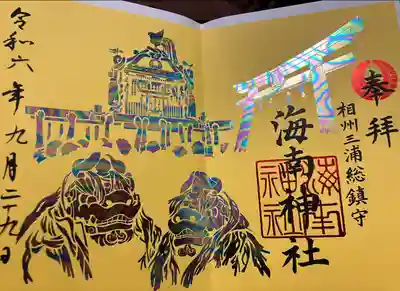 奉拝
相州三浦総鎮守
海南神社
令和六年九月二十九日